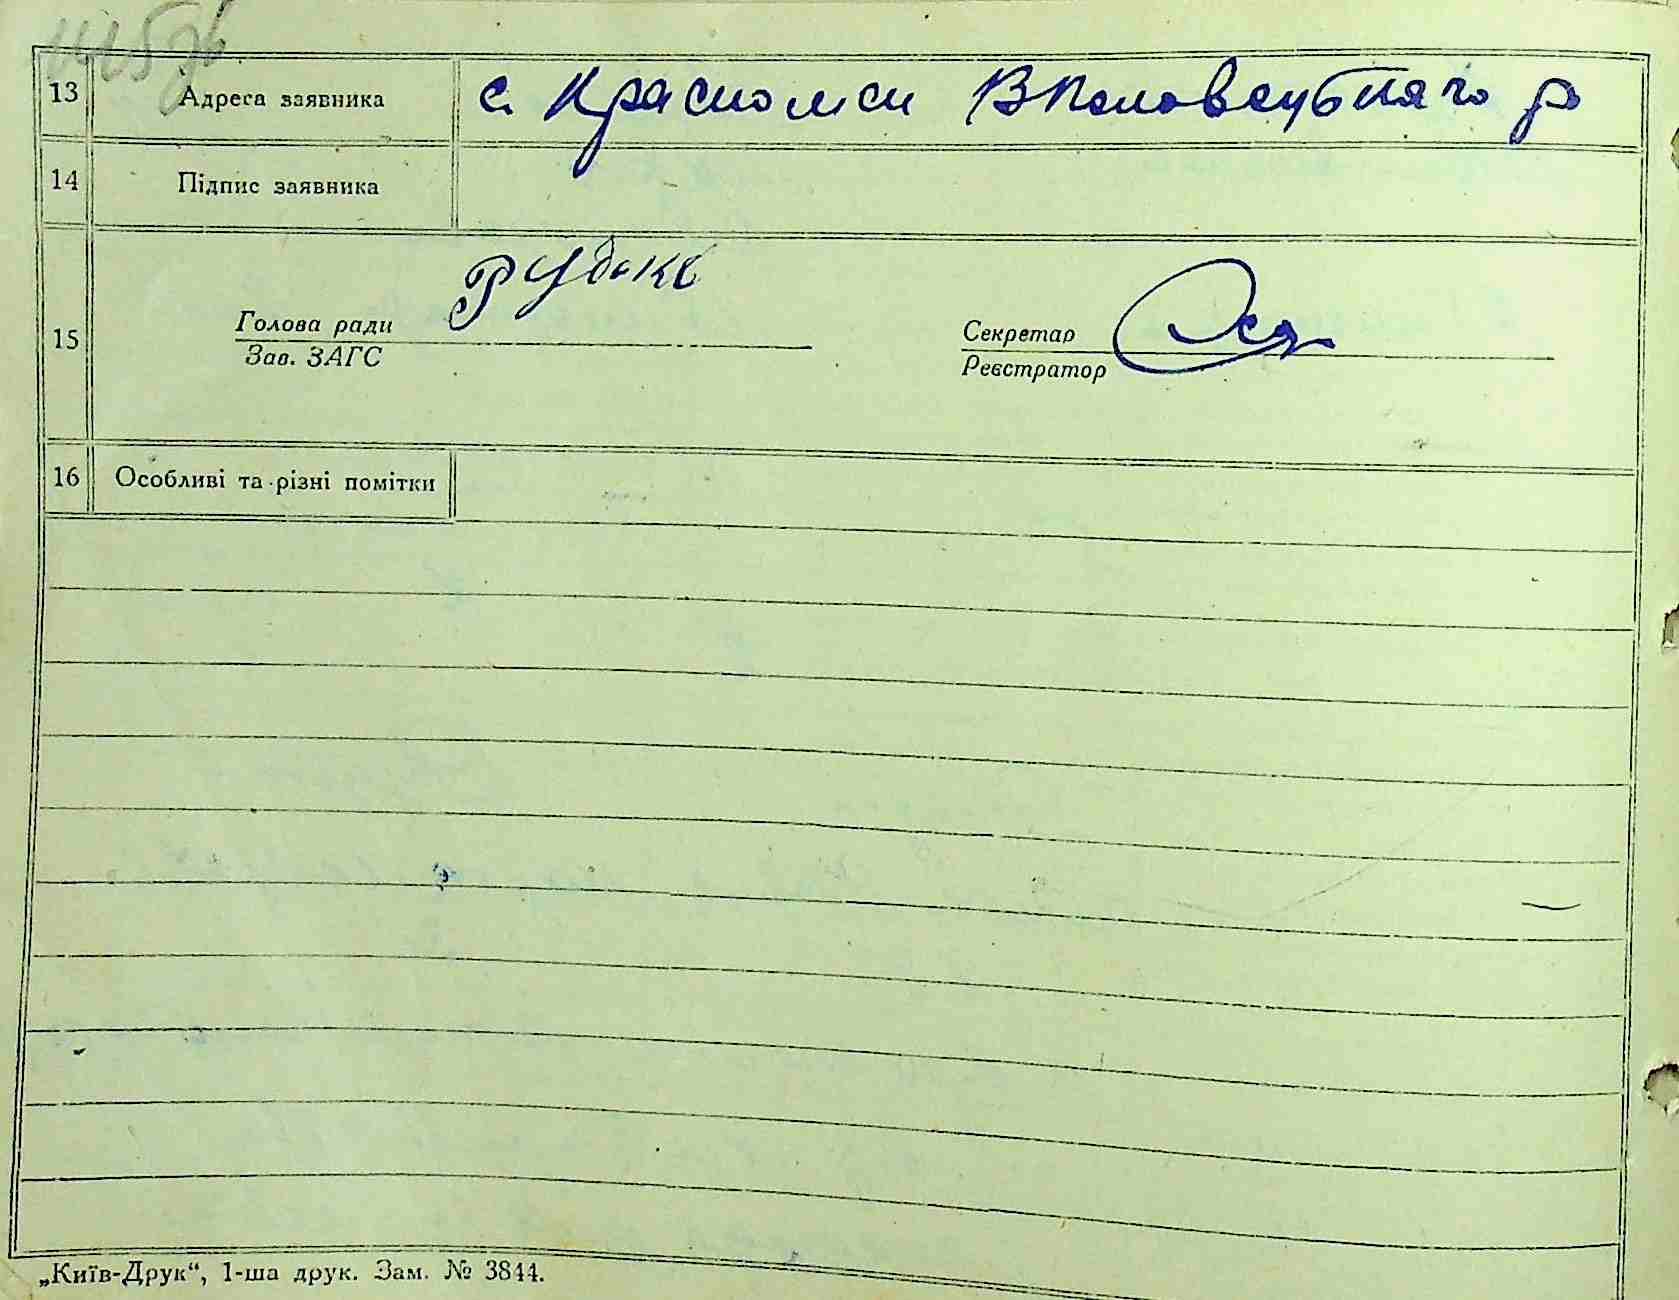 13 Адреса заявника с. Красномси Вполовецубняго р
14 Підпис заявника
15 Голова ради Секретар
Зав. ЗАГС Реєстратор
16 Особливі та різні помітки
„Київ-Друк“, 1-ша друк. Зам. № 3844.